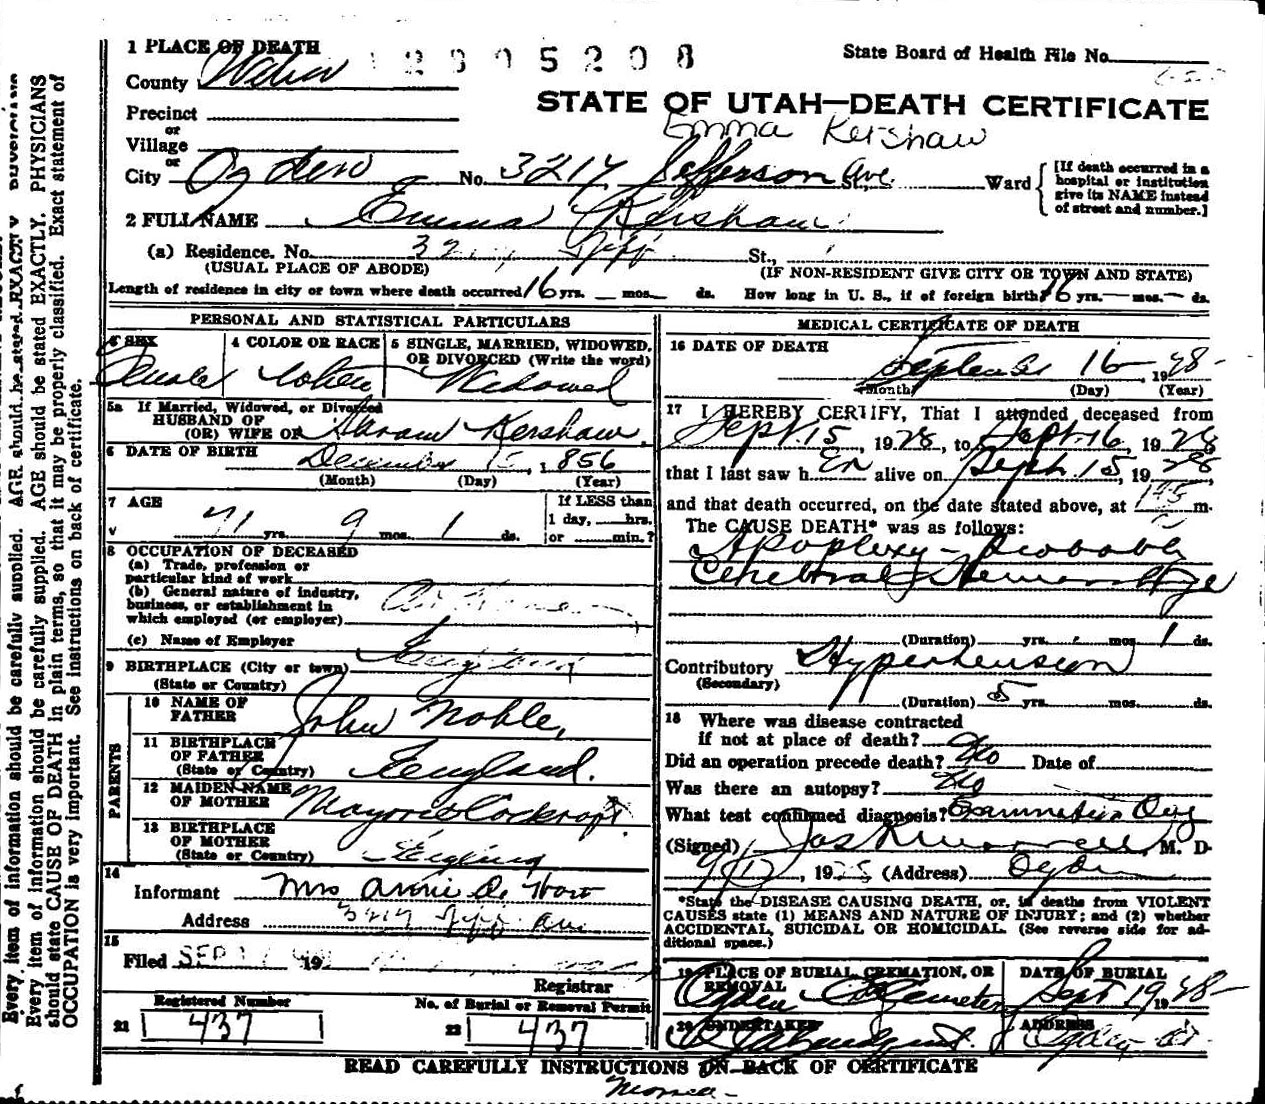 1 PLACE OF DEATH
2805208
State Board of Health File No.
County Weber
STATE OF UTAH—DEATH CERTIFICATE
Precinct
Emma Kershaw
or
Village
or
City Ogden No. 3217 Jefferson Ave St., Ward
[If death occurred in a
hospital or institution
give its NAME instead
of street and number.]
2 FULL NAME Emma Kershaw
(a) Residence. No. 32 Jeff St.,
(USUAL PLACE OF ABODE) (IF NON-RESIDENT GIVE CITY OR TOWN AND STATE)
Length of residence in city or town where death occurred 16 yrs. — mos. ds. How long in U. S., if of foreign birth? yrs. — mos. — ds.
PERSONAL AND STATISTICAL PARTICULARS
SEX
Female
4 COLOR OR RACE
White
5 SINGLE, MARRIED, WIDOWED,
OR DIVORCED (Write the word)
Widowed
5a If Married, Widowed, or Divorced
HUSBAND OF
(OR) WIFE OF Abram Kershaw
6 DATE OF BIRTH December 15, 1856
(Month) (Day) (Year)
7 AGE
71 yrs. 9 mos. 1 ds.
If LESS than
1 day, hrs.
or min.?
8 OCCUPATION OF DECEASED
(a) Trade, profession or
particular kind of work
(b) General nature of industry,
business, or establishment in
which employed (or employer)
(c) Name of Employer
9 BIRTHPLACE (City or town) England
(State or Country)
PARENTS
10 NAME OF
FATHER John Noble,
11 BIRTHPLACE
OF FATHER
(State or Country) England.
12 MAIDEN NAME
OF MOTHER Cockroft
13 BIRTHPLACE
OF MOTHER
(State or Country) England
14
Informant Mrs Annie
Address 3217 Jeff Ave
15
Filed SEP 19
Registrar
Registered Number
21 437
No. of Burial or Removal Permit
22 437
MEDICAL CERTIFICATE OF DEATH
16 DATE OF DEATH
September 16, 1928
(Month) (Day) (Year)
17 I HEREBY CERTIFY, That I attended deceased from
Sept. 15, 1928, to Sept. 16, 1928
that I last saw h er alive on Sept. 15, 1928,
and that death occurred, on the date stated above, at m.
The CAUSE DEATH* was as follows:
Apoplexy - Probable
Cerebral Hemorrhage
(Duration) yrs. mos. 1 ds.
Contributory Hypertension
(Secondary)
(Duration) 5 yrs. mos. ds.
18 Where was disease contracted
if not at place of death?
Did an operation precede death? No Date of
Was there an autopsy? No
What test confirmed diagnosis? Examination Only
(Signed) Jas, M. D.
9/17, 1928 (Address) Ogden
*State the DISEASE CAUSING DEATH, or, in deaths from VIOLENT
CAUSES state (1) MEANS AND NATURE OF INJURY; and (2) whether
ACCIDENTAL, SUICIDAL OR HOMICIDAL. (See reverse side for ad-
ditional space.)
19 PLACE OF BURIAL, CREMATION, OR
REMOVAL
Ogden City Cemetery
DATE OF BURIAL
Sept 19 1928
20 UNDERTAKER
ADDRESS
Ogden Ut.
READ CAREFULLY INSTRUCTIONS ON BACK OF CERTIFICATE
Every item of information should be carefully supplied. AGE should be stated EXACTLY. PHYSICIANS
should state CAUSE OF DEATH in plain terms, so that it may be properly classified. Exact statement of
OCCUPATION is very important. See instructions on back of certificate.